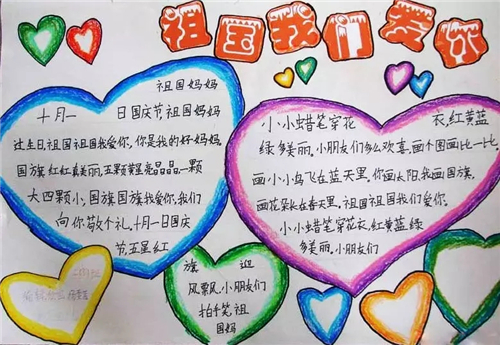 祖国我们爱你
祖国妈妈
十月一 日国庆节祖国妈妈
过生日.祖国祖国我爱你,你是我的好妈妈.
国旗红红真美丽,五颗黄星亮晶晶,一颗
大四颗小,国旗国旗我爱你,我们
向你敬个礼.十月一日国庆
节,五星红
旗 迎
风飘飘,小朋友们
拍手笑,祖
国妈
小小蜡笔穿花 衣,红黄蓝
绿多美丽.小朋友们多么欢喜.画个图画比一比.
画小小鸟飞在蓝天里,你画太阳,我画国旗.
画花朵长在春天里.祖国祖国我们爱你.
小小蜡笔穿花衣,红黄蓝绿
多美丽,小朋友们